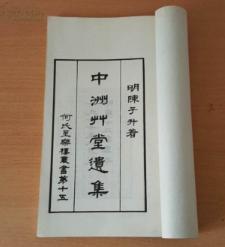 明陳子升着
中洲艸堂遺集
何氏至樂樓叢書第十五